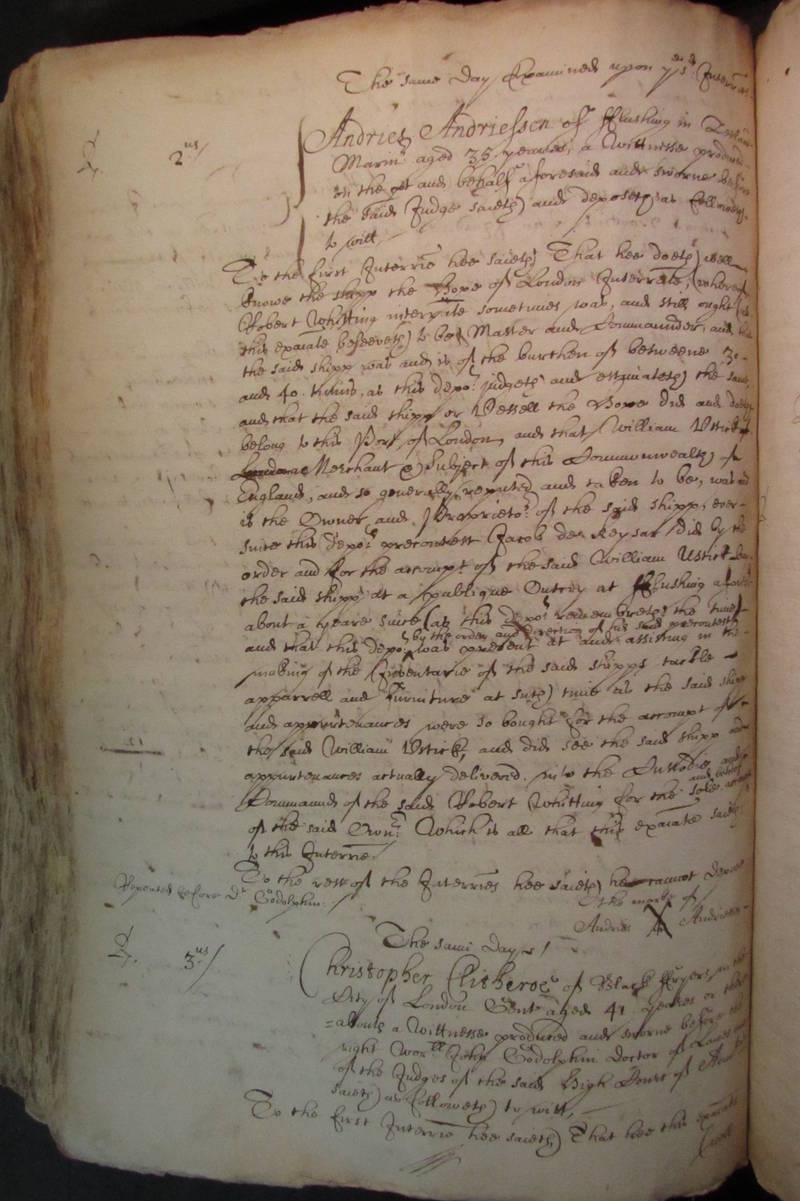 The same day Examined upon y^e s^d Interries
2^us/
Andries Andriessen of fflushing in
Marin^r aged 35 yeares, a Wittnesse produced
on the p^t and behalf aforesaid and sworne before
the said Judge saieth and deposeth as followeth
to witt
To the first Interrie hee saieth That hee doeth well
knowe the shipp the Hope of London Interrate, (whereof
Robert Whitting interrate sometimes was, and still ought (as
this exaiate beleeveth) to bee Master and Commaunder, and
the said shipp was and is of the burthen of betweene 30
and 40 tunns, as this depo^t judgeth and estimateth the same,
and that the said shipp or Vessell the Hope did and doeth
belong to this Port of London, and that William Vstick
Merchant Subject of this Commonwealth of
England, and so generally reputed and taken to be, was and
is the Owner and Proprieto^r of the said shipp, ever
since this depo^ts precontest Jacob de Keysar did by the
order and for the accompt of the said William Ustick buy
the said shipp at a publique Outcry at fflushing aforesd
about a yeare since (as this depo^t remembreth the time)
by the order and direction of his said precontest
and that this depo^t was present at and assisting in the
making of the Inventarie of the said shipps tackle
apparrell and furniture at such time as the said shipp
and appurtenances were so bought for the accompt of
the said William Vstick, and did see the said shipp and
appurtenances actually deliverd into the Custodie and
Command of the said Robert Whitting for the sole
of the said Own^r. Which is all that this exaiate saieth
to this Interrie.
To the rest of the Interries hee saieth hee cannot depose
Repeated before D^r Godolphin.
the marke of
Andries X Andriessen
The same day /
3^us/
Christopher Clitheroe of Black ffryers in the
City of London Gent aged 41 yeares or there
=abouts a Wittnesse produced and sworne before the
right Wor^ll John Godolphin Doctor of Lawes one
of the Judges of the said High Court of Adm
saieth as followeth to witt,
To the first Interrie hee saieth That hee this exaiate